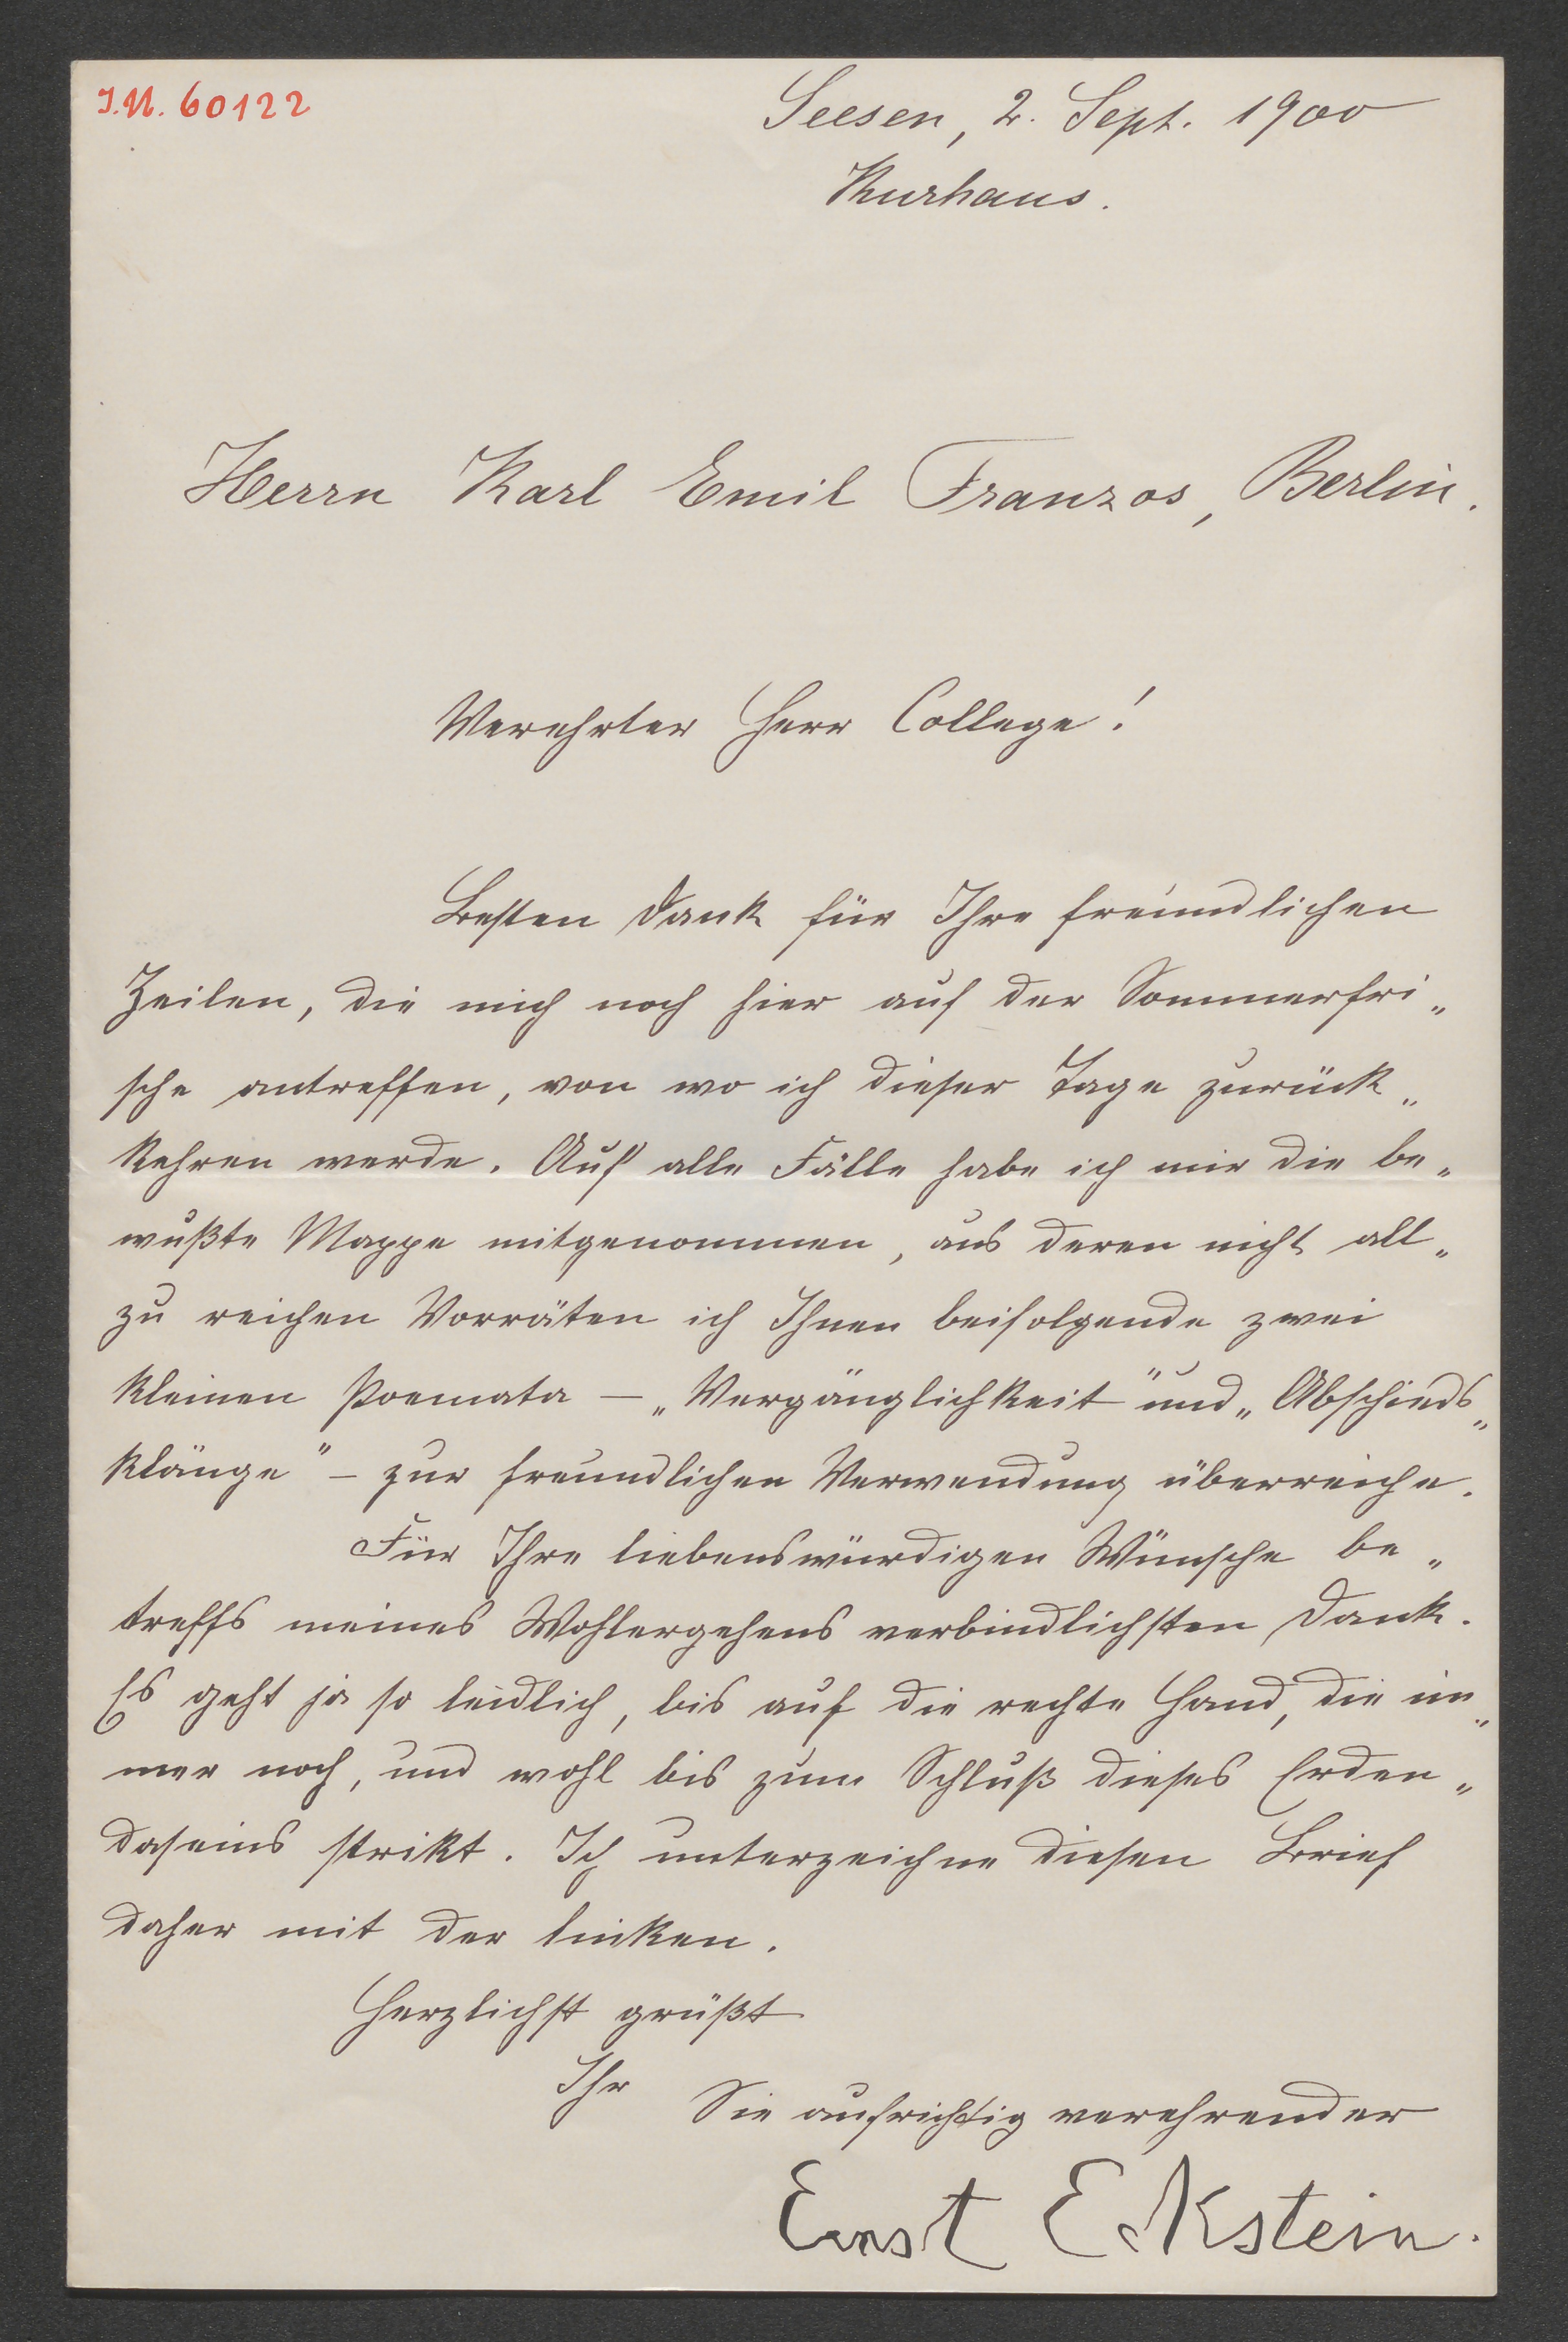 I.N. 60122
Seesen, 2. Sept. 1900
Kurhaus.
Herrn Karl Emil Franzos, Berlin.
Verehrter Herr College!
Besten Dank für Ihre freundlichen
Zeilen, die mich noch hier auf der Sommerfri„
sche antreffen, von wo ich dieser Tage zurück„
kehren werde. Auf alle Fälle habe ich mir die be„
wußte Mappe mitgenommen, aus deren nicht all„
zu reichen Vorräten ich Ihnen beifolgende zwei
kleinen Poemata – „Vergänglichkeit" und „Abschieds„
klänge" – zur freundlichen Verwendung überreiche.
Für Ihre liebenswürdigen Wünsche be„
treffs meines Wohlergehens verbindlichsten Dank.
Es geht ja so leidlich, bis auf die rechte Hand, die im„
mer noch, und wohl bis zum Schluß dieses Erden„
daseins strikt. Ich unterzeichne diesen Brief
daher mit der linken.
Herzlichst grüßt
Ihr
Sie aufrichtig verehrender
Ernst Eckstein.